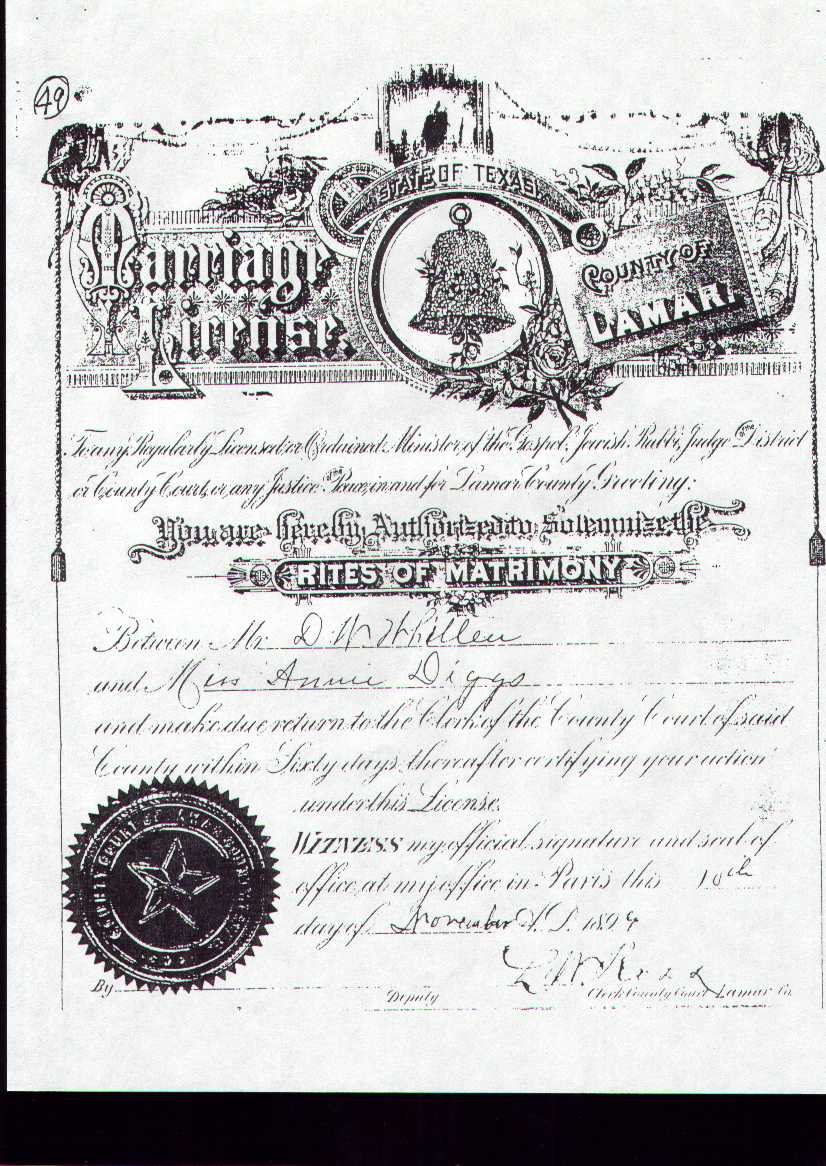 49
STATE OF TEXAS
Marriage
License.
COUNTY OF
LAMAR.
To any Regularly Licensed or Ordained Minister of the Gospel, Jewish Rabbi, Judge of the District
or County Court, or any Justice of the Peace, in and for Lamar County Greeting:
You are hereby Authorized to Solemnize the
RITES OF MATRIMONY
Between Mr. D. W.
and Miss Annie Diggs
and make due return to the Clerk of the County Court of said
County within Sixty days thereafter certifying your action
under this License.
WITNESS my official signature and seal of
office, at my office in Paris this 10th
day of November A.D. 1899
COUNTY COURT OF LAMAR COUNTY
By
Deputy
Clerk County Court Lamar Co.